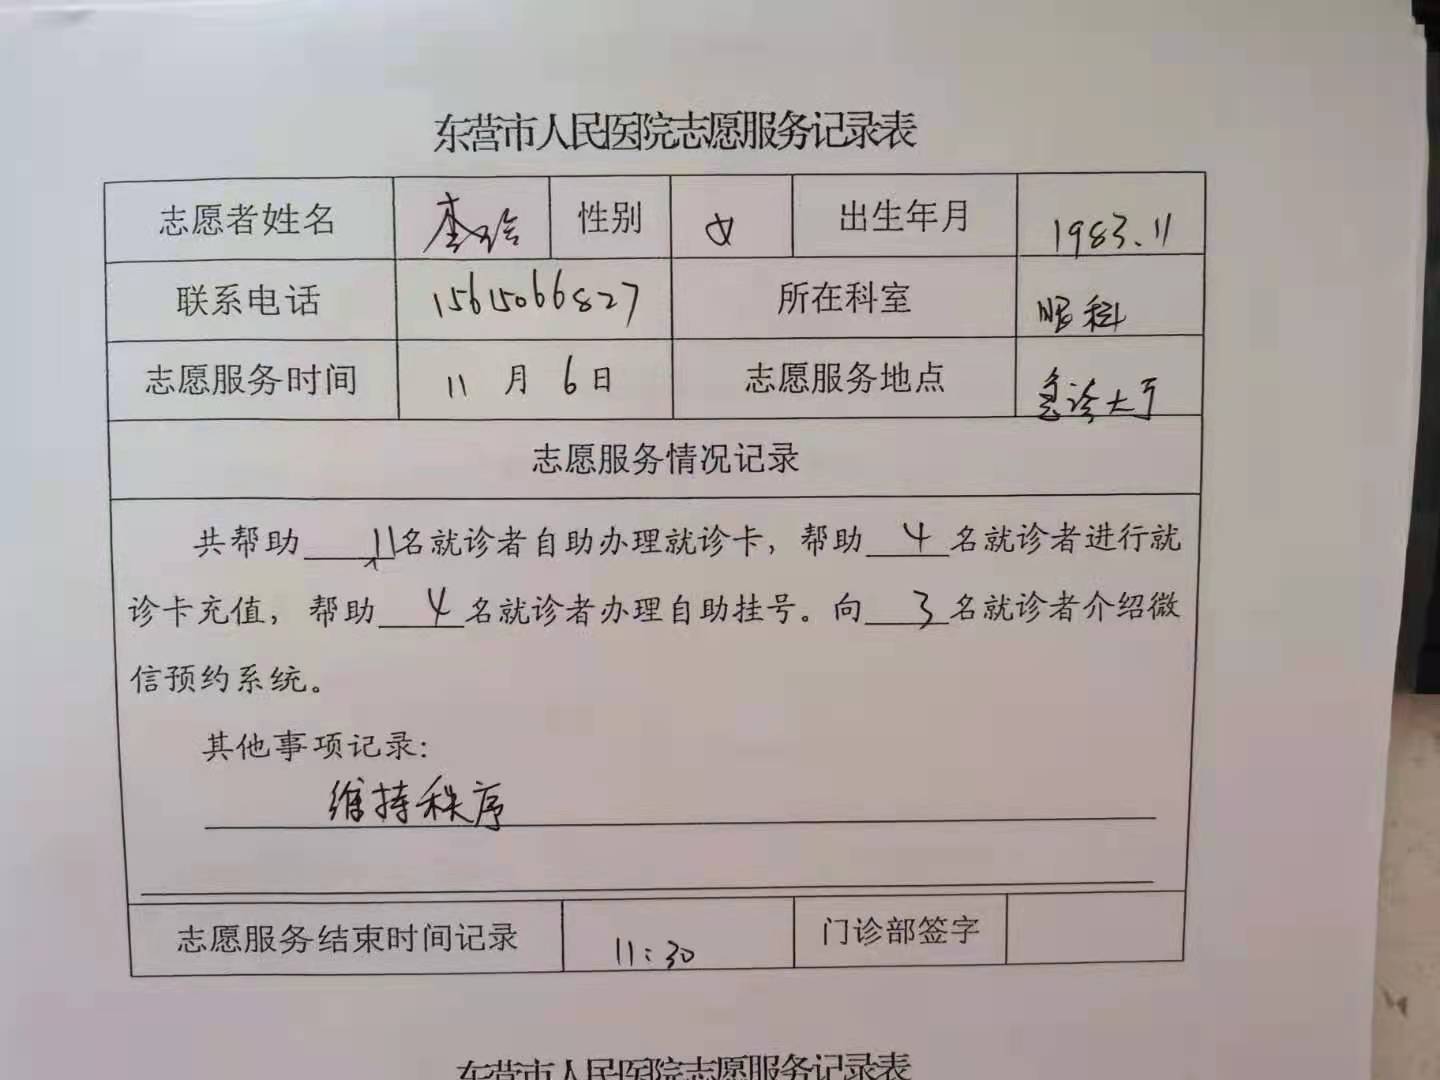 东营市人民医院志愿服务记录表
志愿者姓名 李玲 性别 女 出生年月 1983.11
联系电话 15615066827 所在科室 眼科
志愿服务时间 11月6日 志愿服务地点 急诊大厅
志愿服务情况记录
共帮助11名就诊者自助办理就诊卡，帮助4名就诊者进行就
诊卡充值，帮助4名就诊者办理自助挂号。向3名就诊者介绍微
信预约系统。
其他事项记录：
维持秩序
志愿服务结束时间记录 11:30 门诊部签字
东营市人民医院志愿服务记录表